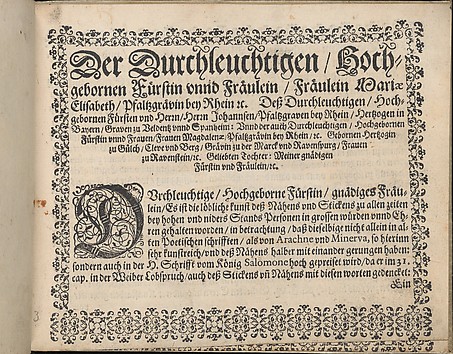 Der Durchleuchtigen / Hoch-
gebornen Fürstin vnnd Fräulein / Fräulein Mariæ
Elisabeth / Pfaltzgrävin bey Rhein ꝛc. Deß Durchleuchtigen / Hoch-
gebornen Fürsten vnd Herrn / Herrn Johannsen / Pfaltzgraven bey Rhein / Hertzogen in
Bayern / Graven zu Veldentz vnnd Spanheim: Vnnd der auch Durchleuchtigen / Hochgebornen
Fürstin vnnd Frawen / Frauen Magdalenæ: Pfaltzgrävin bey Rhein / ꝛc. Gebornen Hertzogin
zu Gülch / Cleve vnd Berg / Grävin zu der Marck vnd Ravenspurg / Frauen
zu Ravenstein / ꝛc. Geliebten Tochter: Meiner gnädigen
Fürstin vnd Fräulein / ꝛc.
DVrchleuchtige / Hochgeborne Fürstin / gnädiges Fräu-
lein / Es ist die löbliche kunst deß Nähens vnd Stickens zu allen zeiten
bey hohen vnd niders Stands Personen in grossen würden vnnd Eh-
ren gehalten worden / in betrachtung / daß dieselbige nicht allein in al-
ten Poetischen schrifften / als von Arachne vnd Minerva, so hierinn
sehr kunstreich / vnd deß Nähens halber mit einander gerungen haben:
sondern auch in der H. Schrifft vom König Salomone hoch gepreiset wird / da er im 31.
cap. in der Weiber Lobspruch / auch deß Stickens vñ Nähens mit diesen worten gedencket:
Ein
3